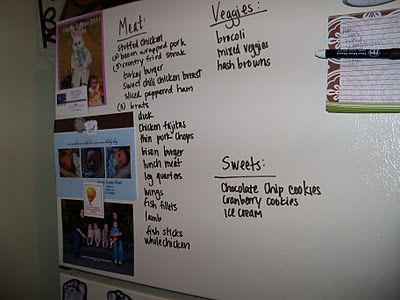 Meat:
stuffed chicken
(2) bacon wrapped pork
(3) country fried steak
turkey burger
sweet chili chicken breast
sliced peppered ham
(3) brats
duck
Chicken fajitas
thin pork chops
bison burger
lunch meat
leg quarters
wings
fish fillets
lamb
fish sticks
whole chicken
Veggies:
brocoli
mixed veggies
hash browns
Sweets:
Chocolate Chip cookies
Cranberry cookies
ICE CREAM
2011